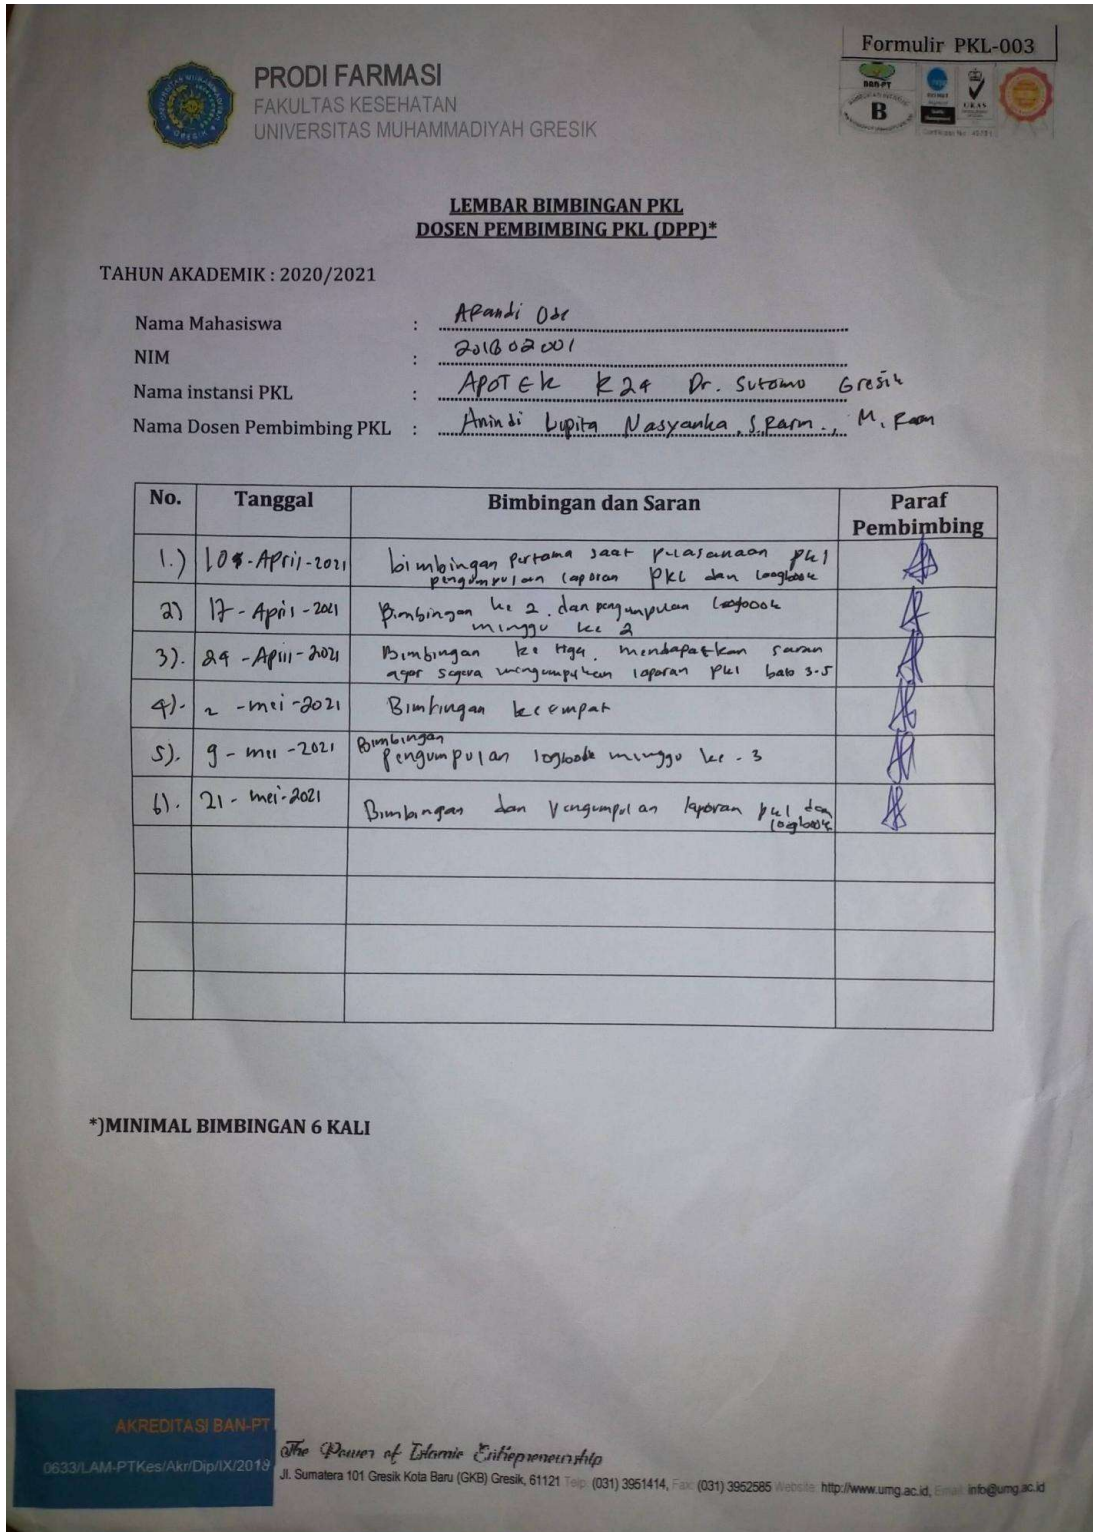 Formulir PKL-003
PRODI FARMASI
FAKULTAS KESEHATAN
UNIVERSITAS MUHAMMADIYAH GRESIK
BAN-PT
B
UKAS
LEMBAR BIMBINGAN PKL
DOSEN PEMBIMBING PKL (DPP)*
TAHUN AKADEMIK : 2020/2021
Nama Mahasiswa : Apandi Ode
NIM : 201802001
Nama instansi PKL : APOTEK K24 Dr. Sutomo Gresik
Nama Dosen Pembimbing PKL : Anindi Lupita Nasyanka, S.Farm., M. Farm
No. Tanggal Bimbingan dan Saran Paraf Pembimbing
1.) -April-2021 bimbingan pertama saat pelasanaan pkl
pengumpulan laporan PKL dan loogbook
2) 17 - April - 2021 Bimbingan ke 2. dan pengumpulan logbook
minggu ke 2
3). 24 -April -2021 Bimbingan ke tiga. mendapatkan saran
agar segera mengumpulkan laporan pkl bab 3-5
4). 2 -mei -2021 Bimbingan keempat
5). 9 - mei -2021 Bimbingan
pengumpulan logbook minggu ke - 3
6). 21 - mei-2021 Bimbingan dan Pengumpulan laporan pkl dan
loogbook
*)MINIMAL BIMBINGAN 6 KALI
AKREDITASI BAN-PT
0633/LAM-PTKes/Akr/Dip/IX/2018
The Power of Islamic Entrepreneurship
Jl. Sumatera 101 Gresik Kota Baru (GKB) Gresik, 61121 Telp. (031) 3951414, Fax. (031) 3952585 Website: http://www.umg.ac.id, Email: info@umg.ac.id